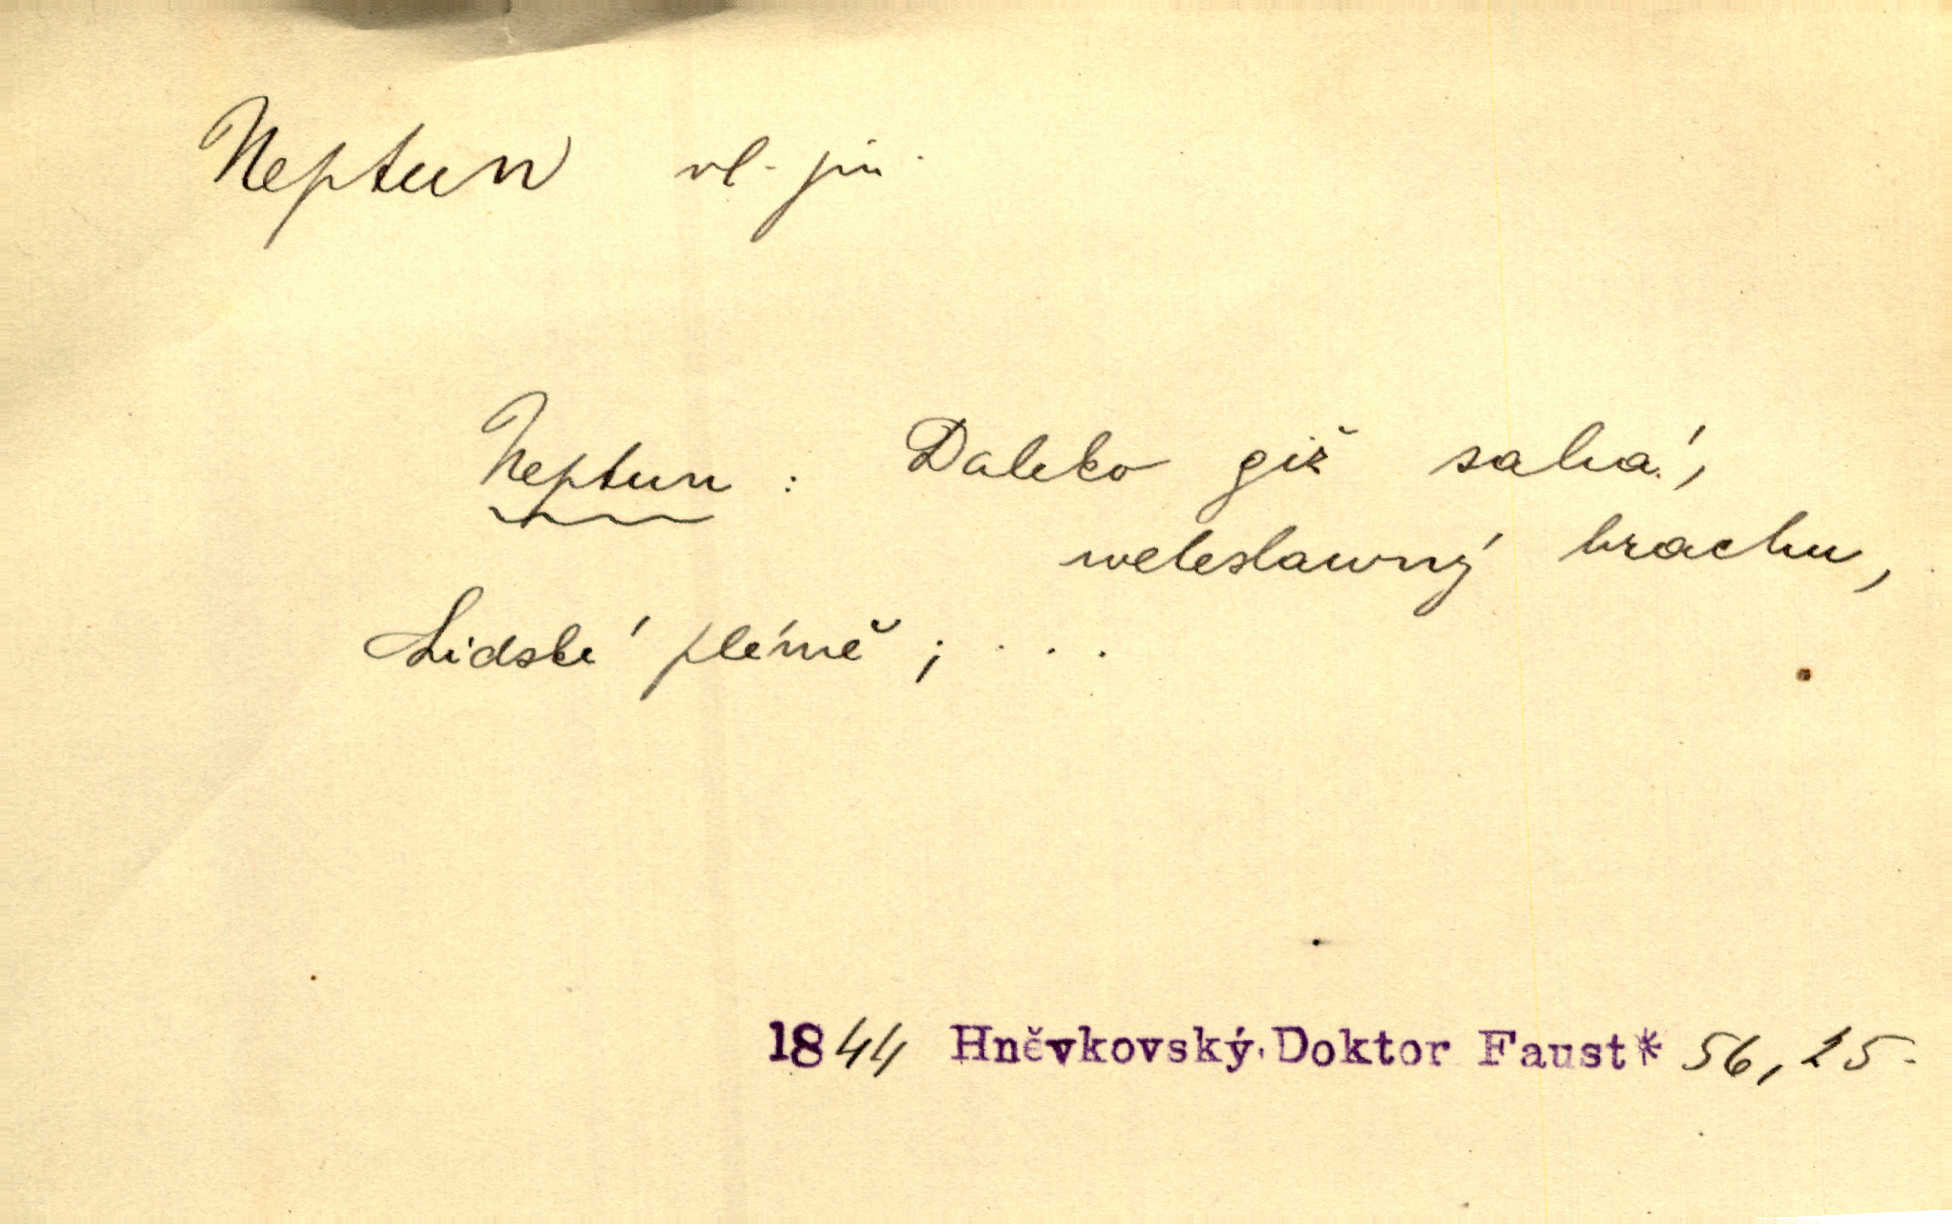 Neptun vl. jm.
Neptun : Daleko giž sahá,
weleslawný brachu,
Lidské plémě ; . . .
1844 Hněvkovský, Doktor Faust* 56, 25.